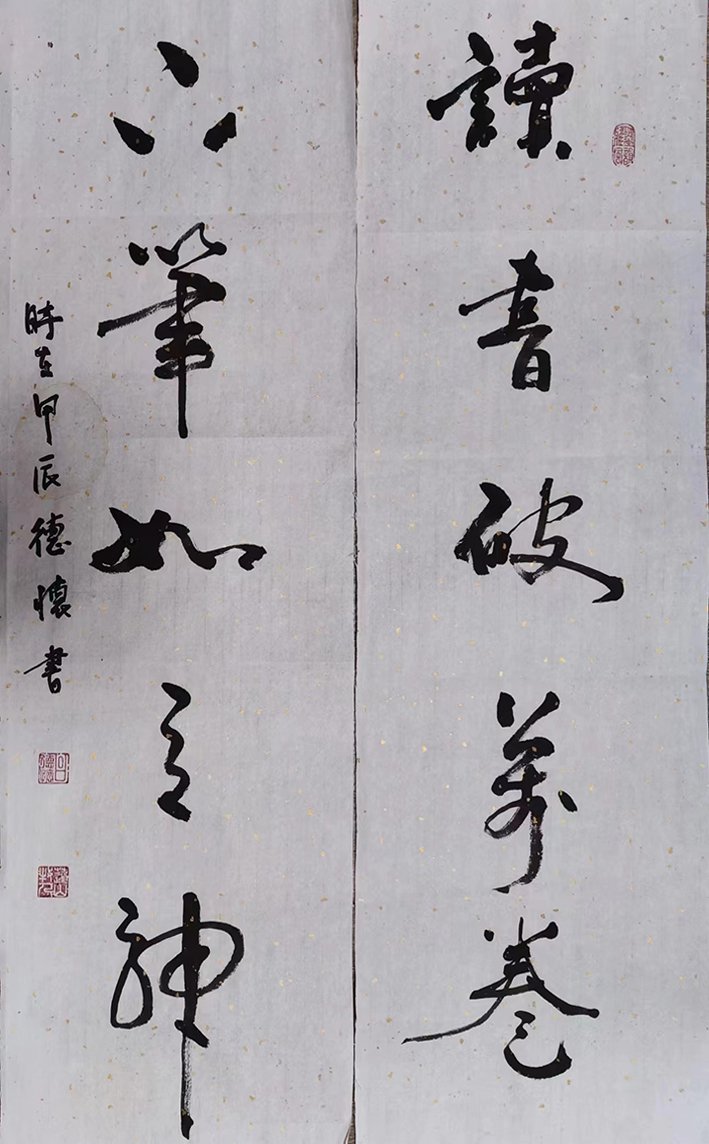 讀書破萬卷
下筆如有神
時在甲辰德懷書